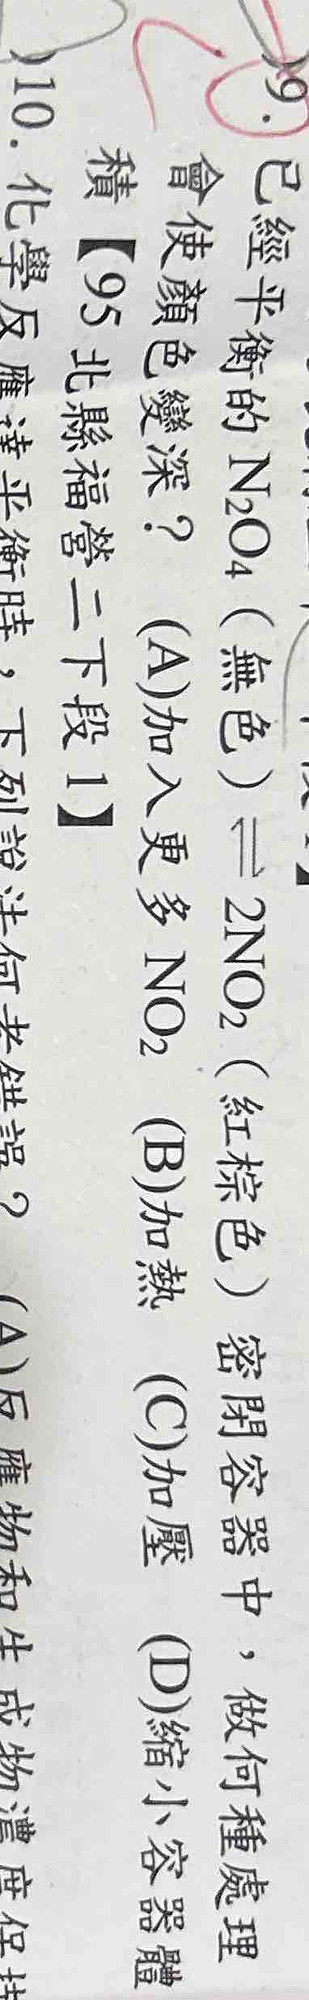 )9. 已經平衡的 N₂O₄（無色）⇌2NO₂（紅棕色）密閉容器中，做何種處理
會使顏色變深？ (A)加入更多 NO₂ (B)加熱 (C)加壓 (D)縮小容器體
積【95 北縣福營二下段 1】
)10. 化學反應達平衡時，下列說法何者錯誤？ (A)反應物和生成物濃度保持